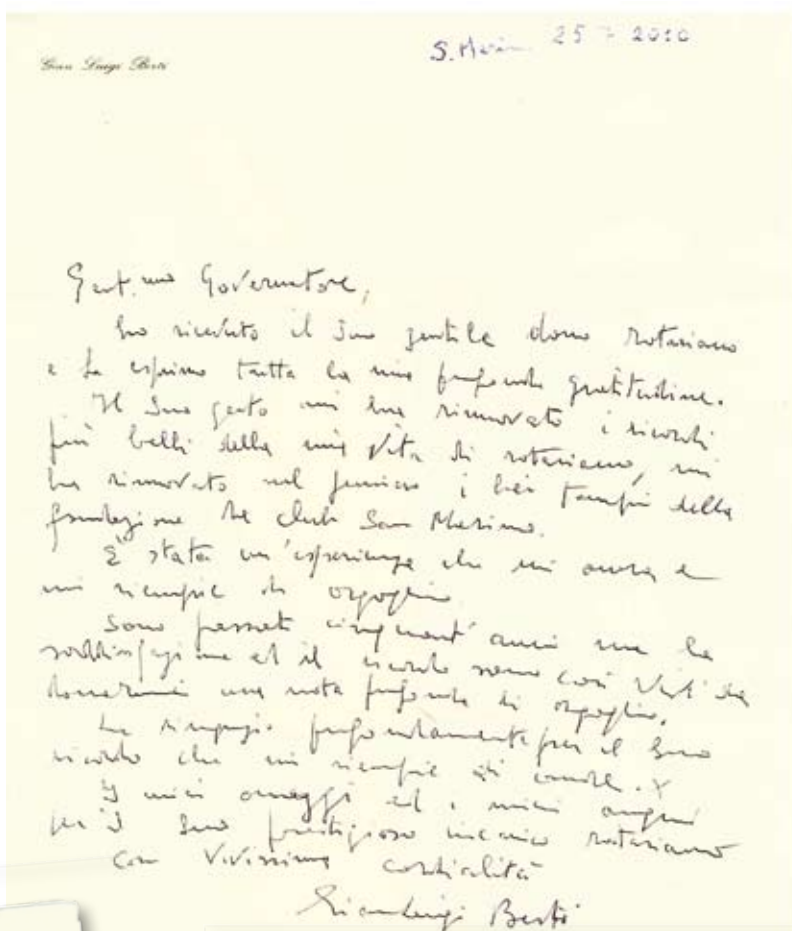 Gian Luigi Berti
S. Marino 25 7 2010
Gent.mo Governatore,
ho ricevuto il Suo gentile dono rotariano
e Le esprimo tutta la mia profonda gratitudine.
Il Suo gesto mi ha rinnovato i ricordi
più belli della mia vita di rotariano, mi
ha rinnovato nel pensiero i bei tempi della
fondazione del club San Marino.
È stata un'esperienza che mi onora e
mi riempie di orgoglio
Sono passati cinquant'anni ma la
soddisfazione ed il ricordo sono così vivi da
donarmi una nota profonda di orgoglio.
La ringrazio profondamente per il Suo
ricordo che mi riempie di
I miei omaggi ed i miei auguri
per il Suo prestigioso incarico rotariano
Con vivissima cordialità
Gianluigi Berti